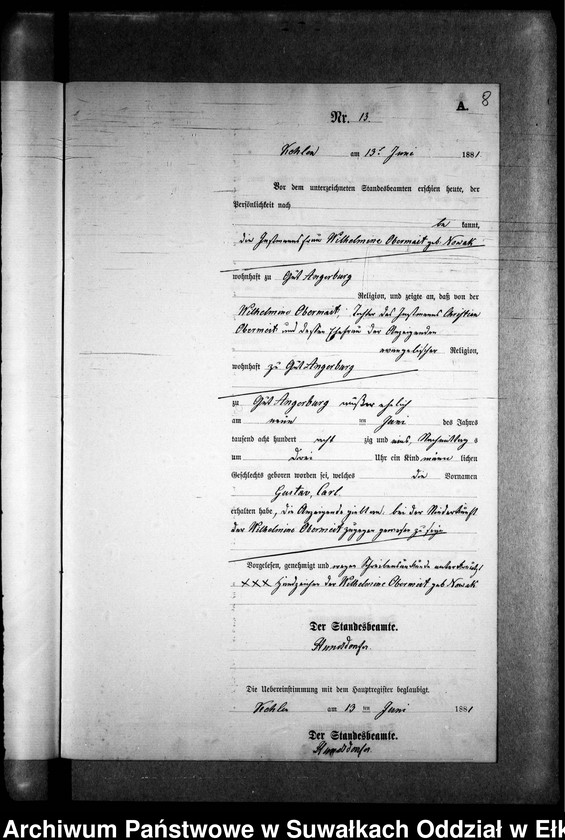 8
A.
Nr. 13.
am 13t Juni 1881.
Vor dem unterzeichneten Standesbeamten erschien heute, der
Persönlichkeit nach
be kannt,
die Instmannsfrau Wilhelmine Obermeit geb. Nowak
wohnhaft zu Gut Angerburg
Religion, und zeigte an, daß von der
Wilhelmine Obermeit, Tochter des Instmanns Christian
Obermeit und dessen Ehefrau der Anzeigenden
evangelischer Religion,
wohnhaft zu Gut Angerburg
zu Gut Angerburg außer ehelich
am neun ten Juni des Jahres
tausend acht hundert acht zig und eins, Nachmittag s
um drei Uhr ein Kind männ lichen
Geschlechts geboren worden sei, welches die Vornamen
Gustav, Carl.
erhalten habe, die Anzeigende giebt an, bei der Niederkunft
der Wilhelmine Obermeit zugegen gewesen zu sein
Vorgelesen, genehmigt und wegen Schreibensunkunde unterkreuzt
XXX Handzeichen der Wilhelmine Obermeit geb. Nowak
Der Standesbeamte.
Die Uebereinstimmung mit dem Hauptregister beglaubigt.
am 13 ten Juni 1881
Der Standesbeamte.
Archiwum Państwowe w Suwałkach Oddział w Ełk